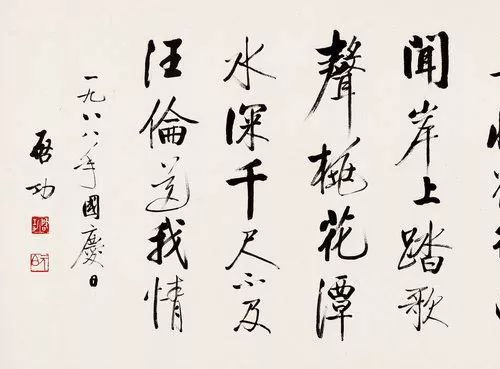 聞岸上踏歌
聲桃花潭
水深千尺不及
汪倫送我情
一九八八年國慶日
啓功